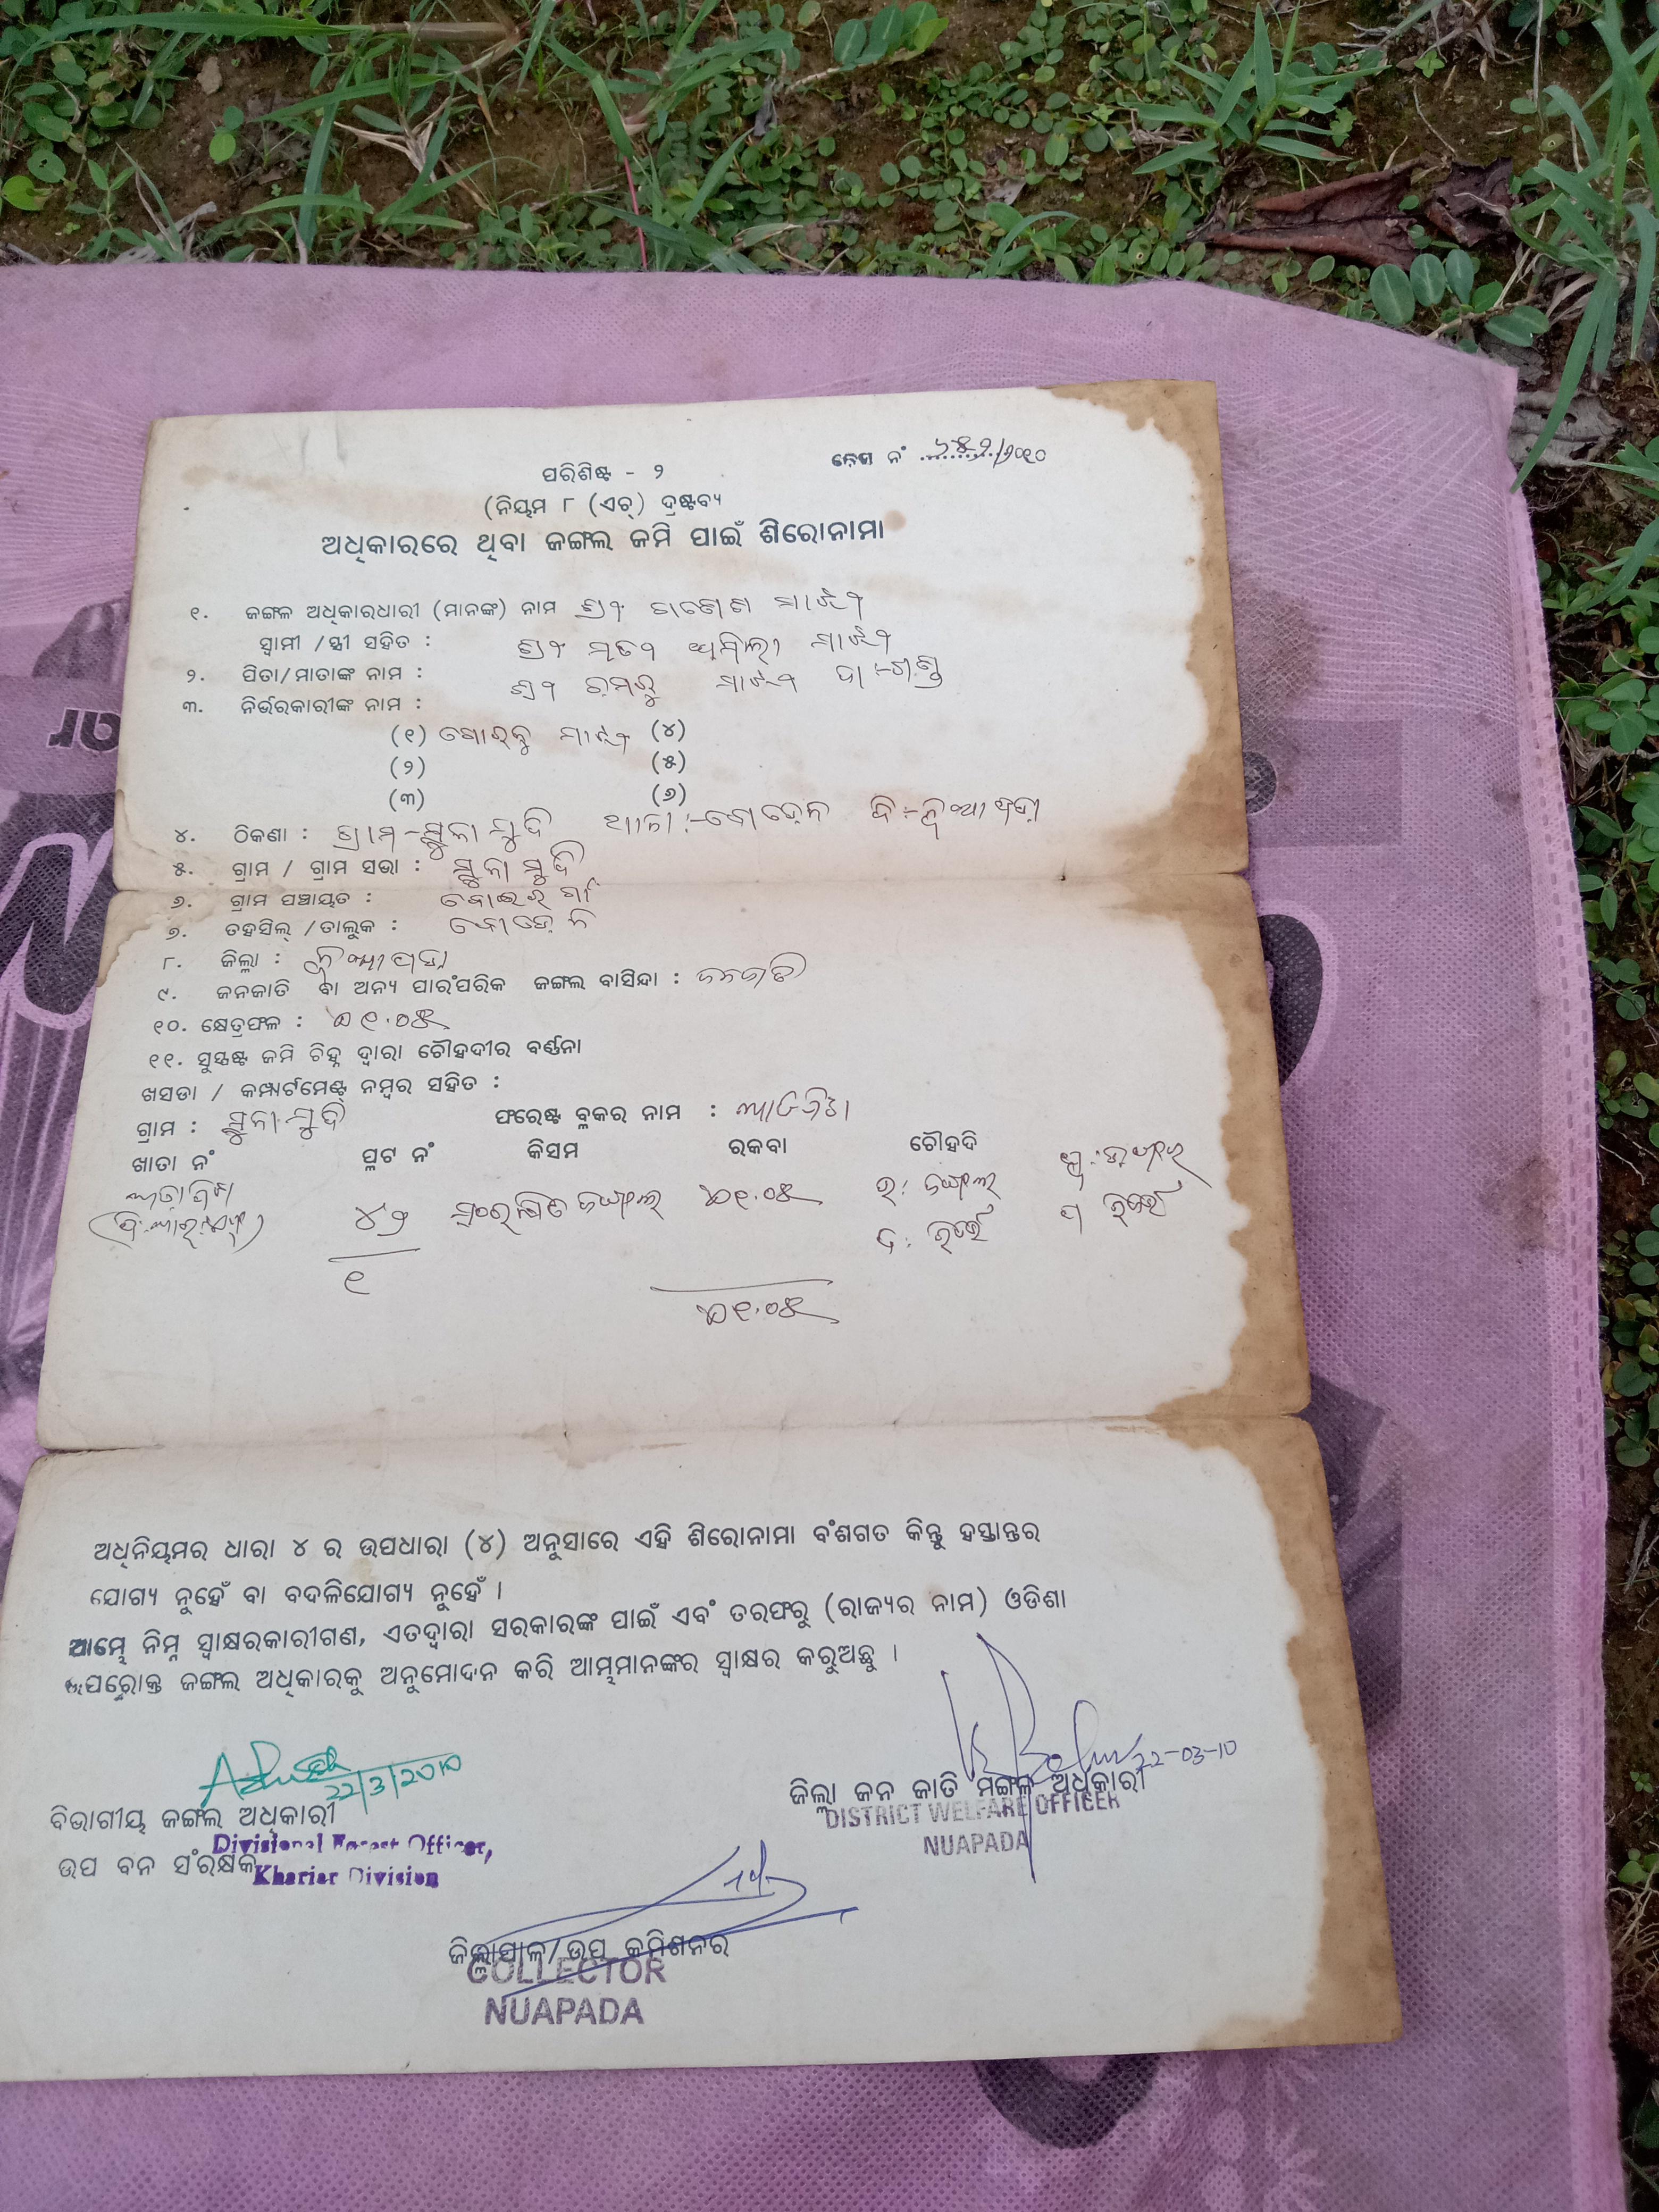 କେଶ ନଂ ...../୨୦୧୦
ପରିଶିଷ୍ଟ - ୨
(ନିୟମ ୮ (ଏଚ୍) ଦ୍ରଷ୍ଟବ୍ୟ
ଅଧିକାରରେ ଥିବା ଜଙ୍ଗଲ ଜମି ପାଇଁ ଶିରୋନାମା
୧. ଜଙ୍ଗଳ ଅଧିକାରଧାରୀ (ମାନଙ୍କ) ନାମ ଶ୍ରୀ ଗଣେଶ ମାଝୀ
ସ୍ୱାମୀ /ସ୍ତ୍ରୀ ସହିତ : ଶ୍ରୀମତୀ ମାଝୀ
୨. ପିତା/ମାତାଙ୍କ ନାମ : ଶ୍ରୀ ମାଝୀ
୩. ନିର୍ଭରକାରୀଙ୍କ ନାମ :
(୧) ମାଝୀ (୪)
(୨) (୫)
(୩) (୬)
୪. ଠିକଣା : ଗ୍ରାମ-ସୁନାମୁଦି ଥାନା:-ବୋଡ଼େନ ଜି:-ନୂଆପଡ଼ା
୫. ଗ୍ରାମ / ଗ୍ରାମ ସଭା : ସୁନାମୁଦି
୬. ଗ୍ରାମ ପଞ୍ଚାୟତ :
୭. ତହସିଲ୍ /ତାଲୁକ : ବୋଡ଼େନ
୮. ଜିଲ୍ଲା : ନୂଆପଡ଼ା
୯. ଜନଜାତି ବା ଅନ୍ୟ ପାରଂପରିକ ଜଙ୍ଗଲ ବାସିନ୍ଦା : ଜନଜାତି
୧୦. କ୍ଷେତ୍ରଫଳ : ଏ ୧.୦୫
୧୧. ସୁସ୍ପଷ୍ଟ ଜମି ଚିହ୍ନ ଦ୍ୱାରା ଚୌହଦୀର ବର୍ଣ୍ଣନା
ଖସଡା / କମ୍ପାର୍ଟମେଣ୍ଟ ନମ୍ବର ସହିତ :
ଗ୍ରାମ : ସୁନାମୁଦି ଫରେଷ୍ଟ ବ୍ଲକର ନାମ :
ଖାତା ନଂ ପ୍ଳଟ ନଂ କିସମ ରକବା ଚୌହଦି
ସଂରକ୍ଷିତ ଜଙ୍ଗଲ ଏ୧.୦୫ ଉ: ଜଙ୍ଗଲ
୧
ଏ୧.୦୫
ଅଧିନିୟମର ଧାରା ୪ ର ଉପଧାରା (୪) ଅନୁସାରେ ଏହି ଶିରୋନାମା ବଂଶଗତ କିନ୍ତୁ ହସ୍ତାନ୍ତର
ଯୋଗ୍ୟ ନୁହେଁ ବା ବଦଳିଯୋଗ୍ୟ ନୁହେଁ ।
ଆମ୍ଭେ ନିମ୍ନ ସ୍ୱାକ୍ଷରକାରୀଗଣ, ଏତଦ୍ୱାରା ସରକାରଙ୍କ ପାଇଁ ଏବଂ ତରଫରୁ (ରାଜ୍ୟର ନାମ) ଓଡିଶା
ଉପରୋକ୍ତ ଜଙ୍ଗଲ ଅଧିକାରକୁ ଅନୁମୋଦନ କରି ଆମ୍ଭମାନଙ୍କର ସ୍ୱାକ୍ଷର କରୁଅଛୁ ।
22/3/2010
22-03-10
ବିଭାଗୀୟ ଜଙ୍ଗଲ ଅଧିକାରୀ
Divisional Forest Officer,
ଉପ ବନ ସଂରକ୍ଷକ
Khariar Division
ଜିଲ୍ଲା ଜନ ଜାତି ମଙ୍ଗଳ ଅଧିକାରୀ
DISTRICT WELFARE OFFICER
NUAPADA
ଜିଲ୍ଲାପାଳ/ଉପ କମିଶନର
COLLECTOR
NUAPADA